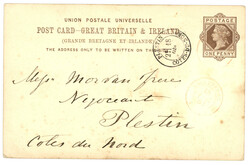 UNION POSTALE UNIVERSELLE
POST CARD—GREAT BRITAIN & IRELAND
(GRANDE BRETAGNE ET IRLANDE)
THE ADDRESS ONLY TO BE WRITTEN ON
POSTAGE
ONE PENNY
Morvan frère
Négociant
Plestin
Cotes du Nord